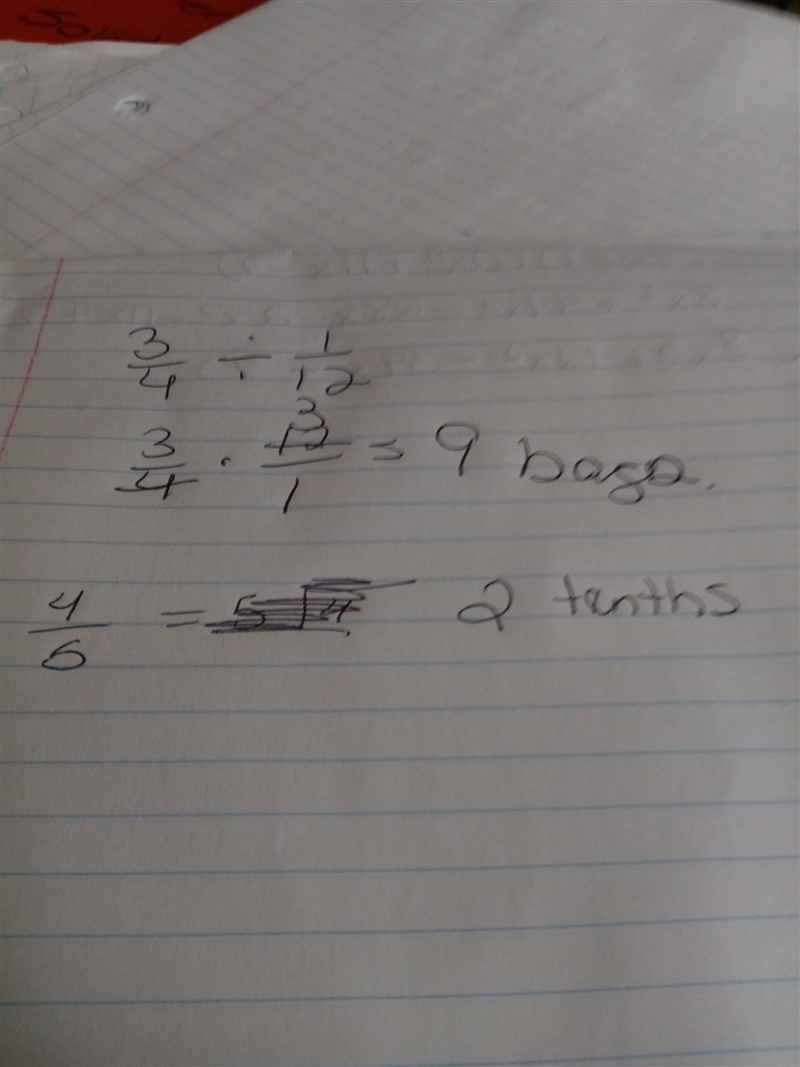 3/4 ÷ 1/12
3/4 · 12/1 3 = 9 bags.
4/5 = 2 tenths